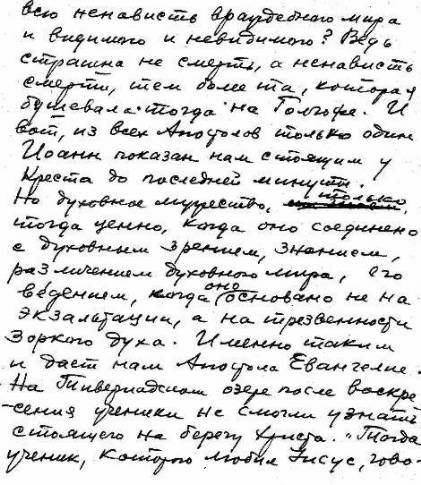 всю ненависть враждебного мира
и видимого и невидимого? Ведь
страшна не смерть, а ненависть
смерти, тем более та, которая
бушевала тогда на Голгофе. И
вот, из всех Апостолов только один
Иоанн показан нам стоящим у
Креста до последней минуты.
Но духовное мужество, только
тогда ценно, когда оно соединено
с духовным зрением, знанием,
различением духовного мира, его
ведением, когда оно основано не на
экзальтации, а на трезвенности
зоркого духа. Именно таким
и дает нам Апостола Евангелие.
На Тивериадском озере после воскре-
-сения ученики не смогли узнать
стоящего на берегу Христа. "Тогда
ученик, которого любил Иисус, гово-